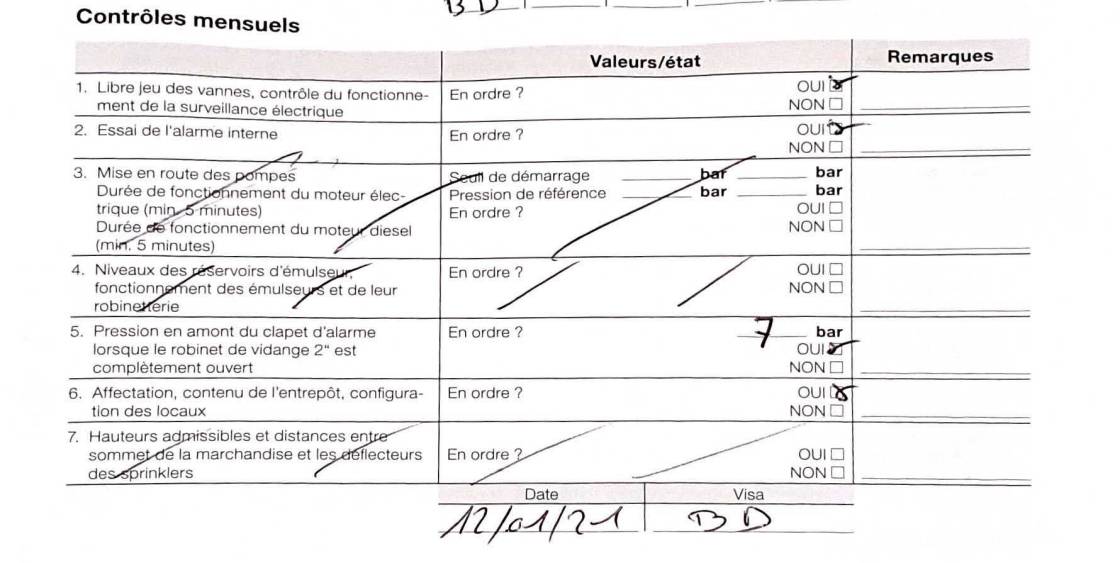 BD
Contrôles mensuels
Valeurs/état
Remarques
1. Libre jeu des vannes, contrôle du fonctionne-
ment de la surveillance électrique
En ordre ?
OUI
NON
2. Essai de l'alarme interne
En ordre ?
OUI
NON
3. Mise en route des pompes
Durée de fonctionnement du moteur élec-
trique (min. 5 minutes)
Durée de fonctionnement du moteur diesel
(min. 5 minutes)
Seuil de démarrage
bar
bar
Pression de référence
bar
bar
En ordre ?
OUI
NON
4. Niveaux des réservoirs d'émulseur,
fonctionnement des émulseurs et de leur
robinetterie
En ordre ?
OUI
NON
5. Pression en amont du clapet d'alarme
lorsque le robinet de vidange 2" est
complètement ouvert
En ordre ?
7 bar
OUI
NON
6. Affectation, contenu de l'entrepôt, configura-
tion des locaux
En ordre ?
OUI
NON
7. Hauteurs admissibles et distances entre
sommet de la marchandise et les déflecteurs
des sprinklers
En ordre ?
OUI
NON
Date
Visa
12/01/21
BD